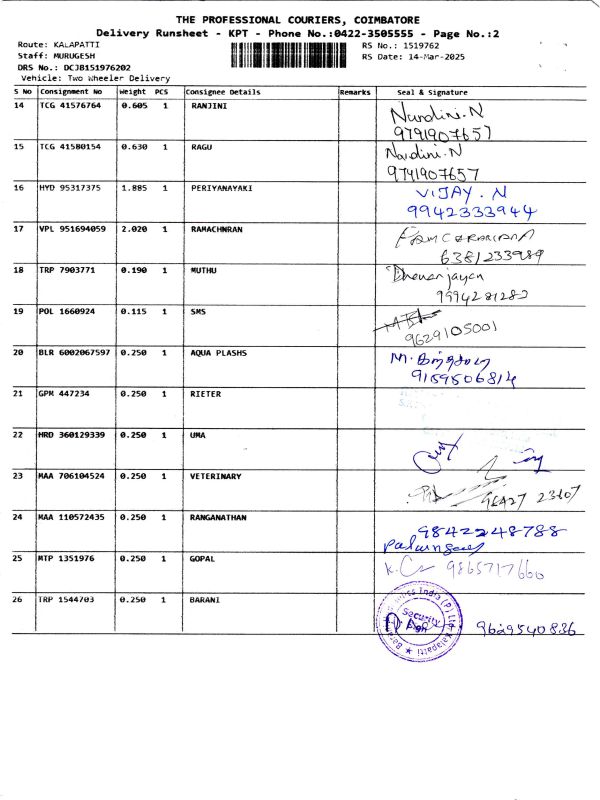 THE PROFESSIONAL COURIERS, COIMBATORE
Delivery Runsheet - KPT - Phone No.:0422-3505555 - Page No.:2
Route: KALAPATTI
Staff: MURUGESH
DRS No.: DCJB151976202
Vehicle: Two Wheeler Delivery
RS No.: 1519762
RS Date: 14-Mar-2025
S No Consignment No Weight PCS Consignee Details Remarks Seal & Signature
14 TCG 41576764 0.605 1 RANJINI Nandini.N
9791907657
15 TCG 41580154 0.630 1 RAGU Nandini.N
9791907657
16 HYD 95317375 1.885 1 PERIYANAYAKI VIJAY. N
9942333944
17 VPL 951694059 2.020 1 RAMACHNRAN
6381233989
18 TRP 7903771 0.190 1 MUTHU Dhananjayan
9994281282
19 POL 1660924 0.115 1 SMS
9629105001
20 BLR 6002067597 0.250 1 AQUA PLASHS
9159506814
21 GPM 447234 0.250 1 RIETER
22 HRD 360129339 0.250 1 UMA
23 MAA 706104524 0.250 1 VETERINARY
24 MAA 110572435 0.250 1 RANGANATHAN 9842248788
25 MTP 1351976 0.250 1 GOPAL 9865717660
26 TRP 1544703 0.250 1 BARANI Security
9629540836